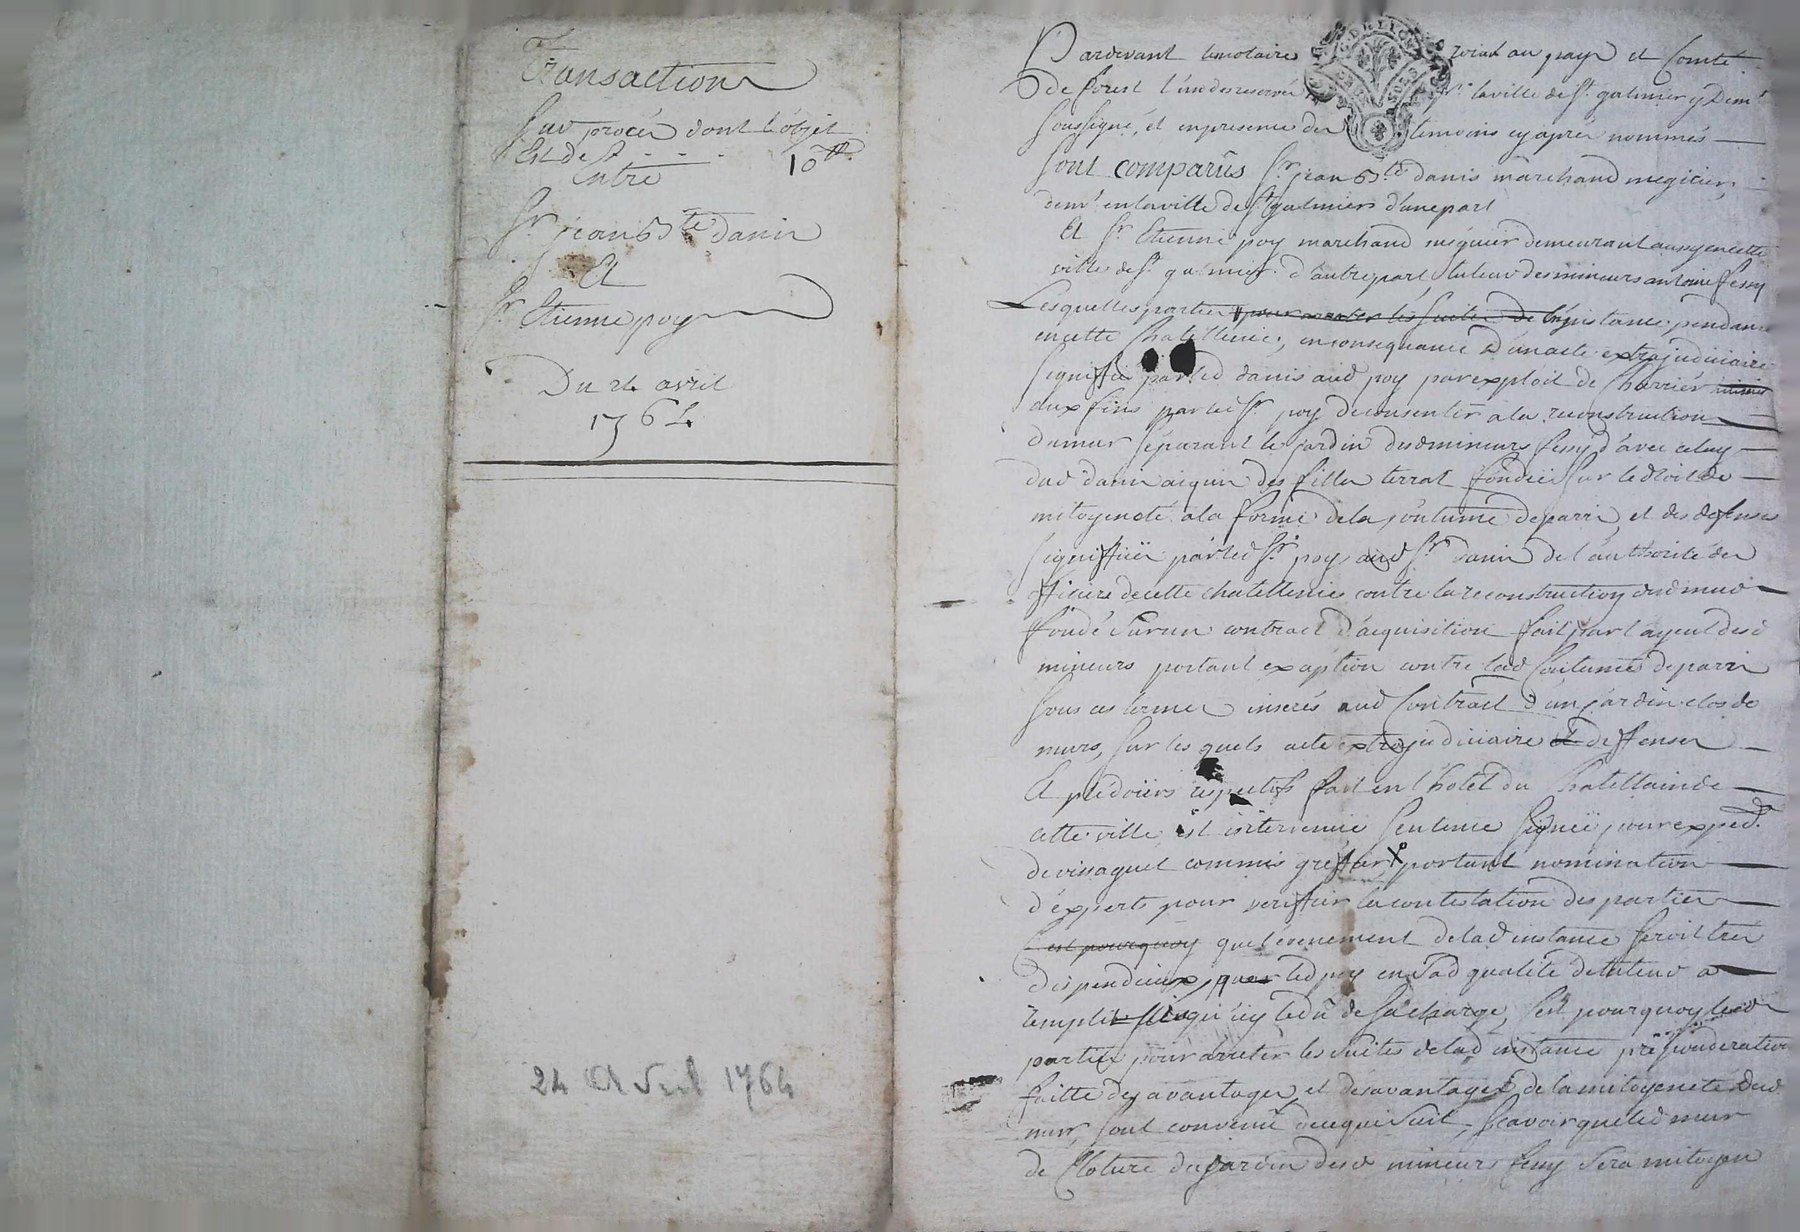 Transaction
Sur procés dont l'objet
Est de . . . . 10 ₶
Entre
Sr. jean Bte danis
Et
Sr. Etienne poy
Du 24 avril
1764
24 Avril 1764
Pardevant le notaire roial au pays et Comté
de forest l'un des reservés la ville de St. galmier y Demt.
soussigné, et en presence des temoins cy après nommés
sont comparûs Sr. jean Bte danis marchand megitier,
demt. en la ville de St galmier d'une part
Et Sr. Etienne poy marchand meguier demeurant aussy en cette
ville de St. galmier d'autre part, tuteur des mineurs antoine fessy
Lesquelles parties pour arreter les suites de l'instance pendante
en cette Chatellenie, en consequance D'un acte extrajudiciaire
signiffié par led danis aud poy par exploit de Charrier
aux fins par led Sr. poy de consentir a la reconstruction
du mur separant le jardin desd mineurs fessy d'avec celuy
dud danis acquis des filles terrat fondée sur le droit de
mitoyeneté a la forme de la Coutume de paris, et des defenses
signiffiées par led Sr. poy aud Sr. danis de l'authorité des
officiers de cette chatellenie contre la reconstruction dud mur
fondé sur un contract d'acquisition fait par l'ayeul desd
mineurs portant exception contre lad Coutume de paris
sous ces termes inserés aud Contract d'un jardin clos de
murs, sur les quels acte extrajudiciaire et deffenses
Et plédoiers respectifs fait en l'hotel du Chatellain de
cette ville est intervenue sentence signée pour exped.
de vissaguet commis greffier, portant nomination
d'experts pour veriffier la contestation des parties
C'est pourquoy que l'evenement de lad instance seroit tres
dispendieux, que led poy en sad qualité de tuteur a
remplit le dû de sa charge, C'est pourquoy lesd
parties pour arreter les suites de lad instance preponderation
faitte des avantages et desavantages de la mitoyeneté dud
mur, sont convenu de ce qui suit, scavoir que led mur
de Cloture du jardin desd mineurs fessy sera mitoyen